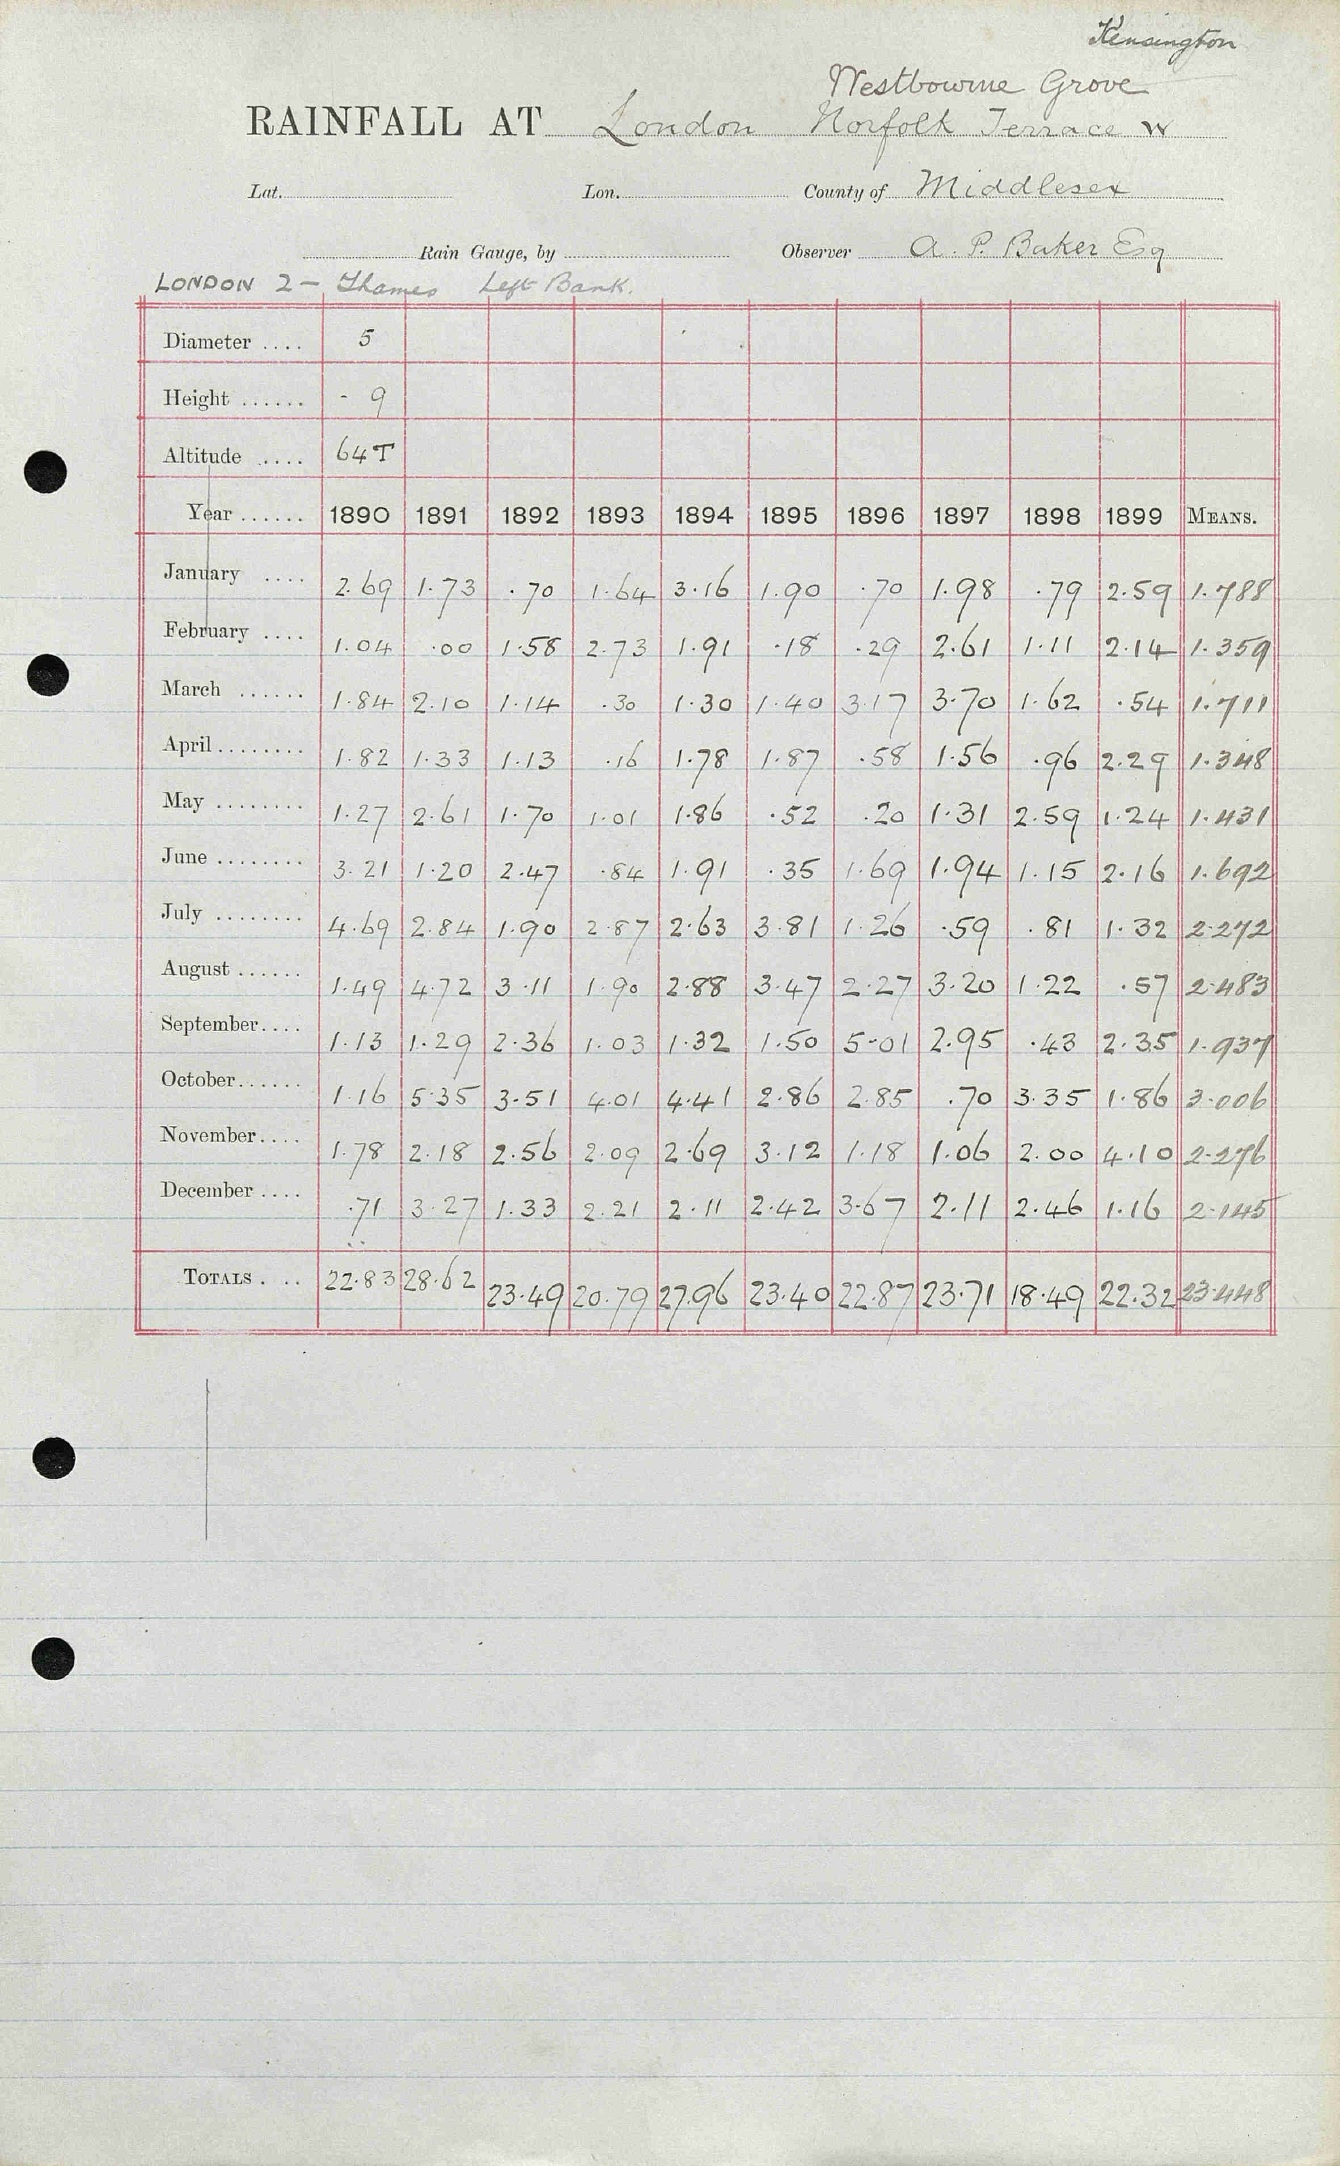 Kensington
Westbourne Grove
RAINFALL AT London Norfolk Terrace W
Lat. Lon. County of Middlesex
Rain Gauge, by Observer A. P. Baker Esq
LONDON 2 - Thames Left Bank.
Diameter .... 5
Height ...... - 9
Altitude .... 64T
Year ...... 1890 1891 1892 1893 1894 1895 1896 1897 1898 1899 MEANS.
January .... 2.69 1.73 .70 1.64 3.16 1.90 .70 1.98 .79 2.59 1.788
February .... 1.04 .00 1.58 2.73 1.91 .18 .29 2.61 1.11 2.14 1.359
March ...... 1.84 2.10 1.14 .30 1.30 1.40 3.17 3.70 1.62 .54 1.711
April ........ 1.82 1.33 1.13 .16 1.78 1.87 .58 1.56 .96 2.29 1.348
May ........ 1.27 2.61 1.70 1.01 1.86 .52 .20 1.31 2.59 1.24 1.431
June ........ 3.21 1.20 2.47 .84 1.91 .35 1.69 1.94 1.15 2.16 1.692
July ........ 4.69 2.84 1.90 2.87 2.63 3.81 1.26 .59 .81 1.32 2.272
August ...... 1.49 4.72 3.11 1.90 2.88 3.47 2.27 3.20 1.22 .57 2.483
September.... 1.13 1.29 2.36 1.03 1.32 1.50 5.01 2.95 .43 2.35 1.937
October...... 1.16 5.35 3.51 4.01 4.41 2.86 2.85 .70 3.35 1.86 3.006
November.... 1.78 2.18 2.56 2.09 2.69 3.12 1.18 1.06 2.00 4.10 2.276
December .... .71 3.27 1.33 2.21 2.11 2.42 3.67 2.11 2.46 1.16 2.145
TOTALS . .. 22.83 28.62 23.49 20.79 27.96 23.40 22.87 23.71 18.49 22.32 23.448